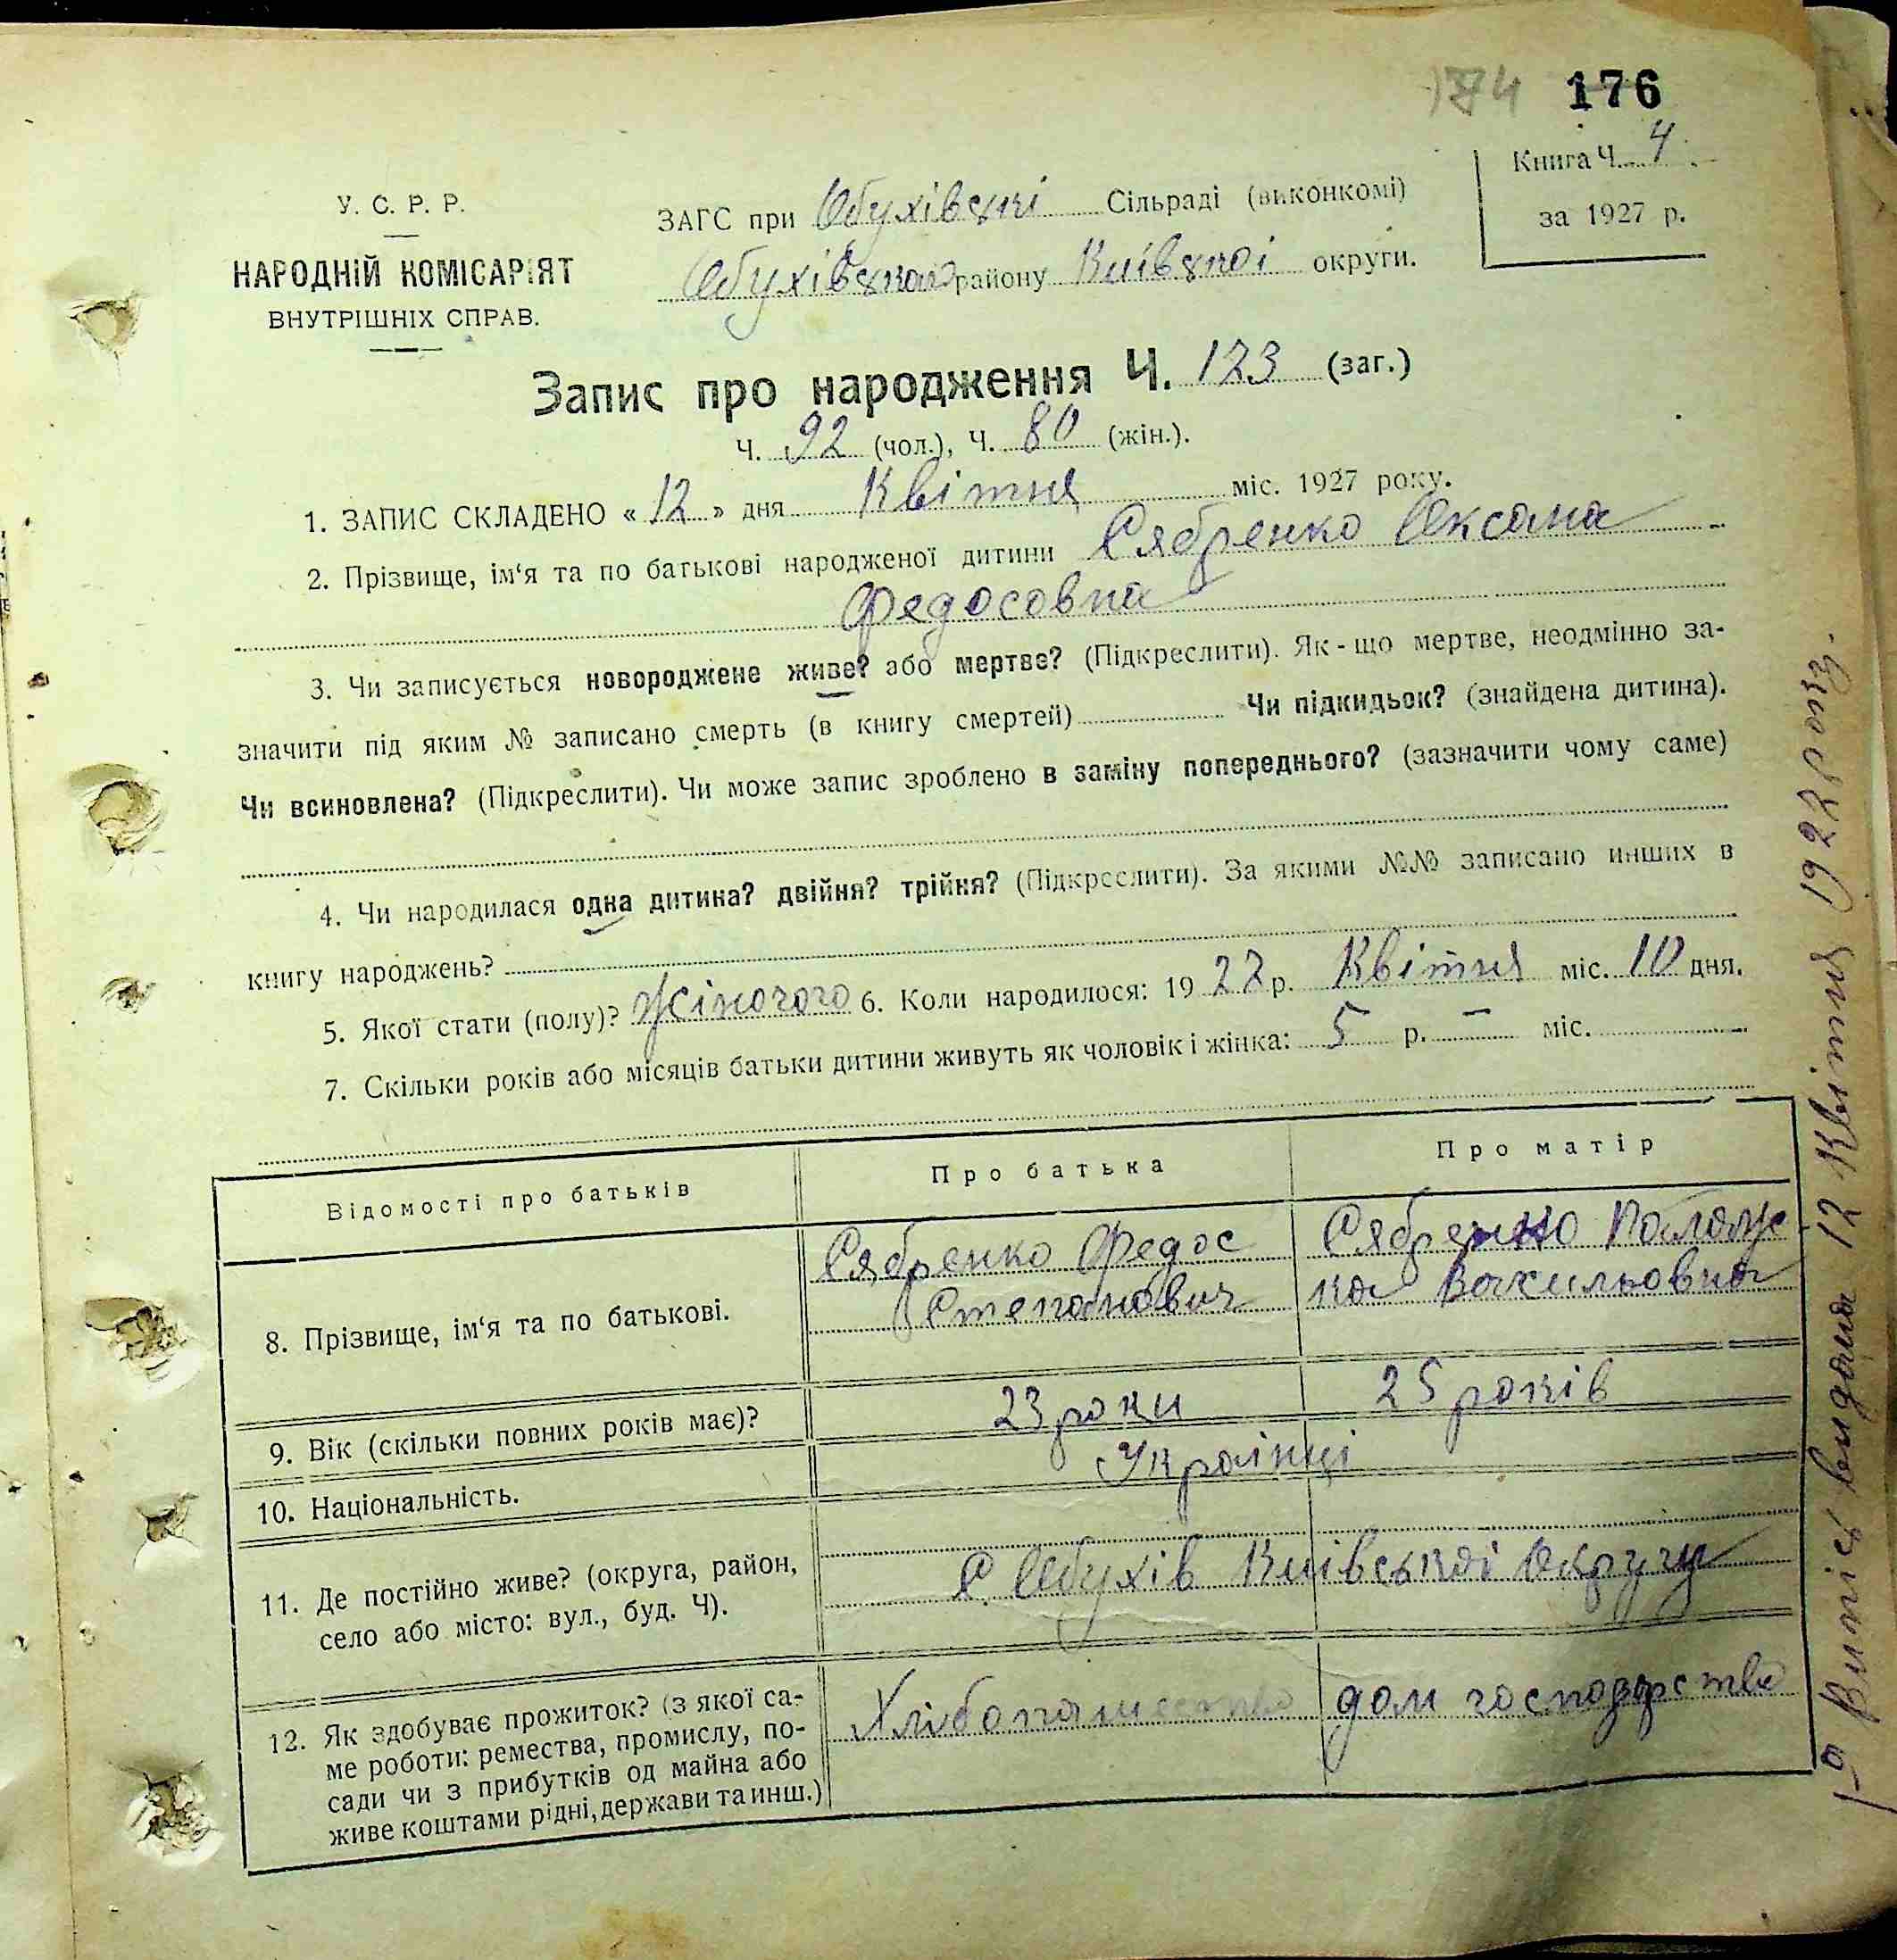 174 176
Книга Ч. 4
за 1927 р.
У. С. Р. Р.
НАРОДНІЙ КОМІСАРІЯТ
ВНУТРІШНІХ СПРАВ.
ЗАГС при Обухівскі Сільраді (виконкомі)
Обухівского району Київскоі округи.
Запис про народження Ч. 173 (заг.)
Ч. 92 (чол.), Ч. 80 (жін.).
1. ЗАПИС СКЛАДЕНО «12» дня Квітня міс. 1927 року.
2. Прізвище, ім‘я та по батькові народженої дитини Сябренко Оксана
Федосовна
3. Чи записується новороджене живе? або мертве? (Підкреслити). Як-що мертве, неодмінно за-
значити під яким № записано смерть (в книгу смертей) Чи підкидьок? (знайдена дитина).
Чи всиновлена? (Підкреслити). Чи може запис зроблено в заміну попереднього? (зазначити чому саме)
4. Чи народилася одна дитина? двійня? трійня? (Підкреслити). За якими №№ записано инших в
книгу народжень?
5. Якої стати (полу)? Жіночого 6. Коли народилося: 1927 р. Квітня міс. 10 дня.
7. Скільки років або місяців батьки дитини живуть як чоловік і жінка: 5 р. – міс.
Відомості про батьків Про батька Про матір
8. Прізвище, ім‘я та по батькові. Сябренко Федос Сябренко Палаж
Степанович ка Васильовна
9. Вік (скільки повних років має)? 23 роки 25 років
10. Національність. Украінці
11. Де постійно живе? (округа, район,
село або місто: вул., буд. Ч).
С. Обухів Киівськоі Округи
12. Як здобуває прожиток? (з якої са-
ме роботи: ремества, промислу, по-
сади чи з прибутків од майна або
живе коштами рідні, держави та инш.)
Хлібопашество дом господарство
Випись видана 12 Квітня 1927 року.